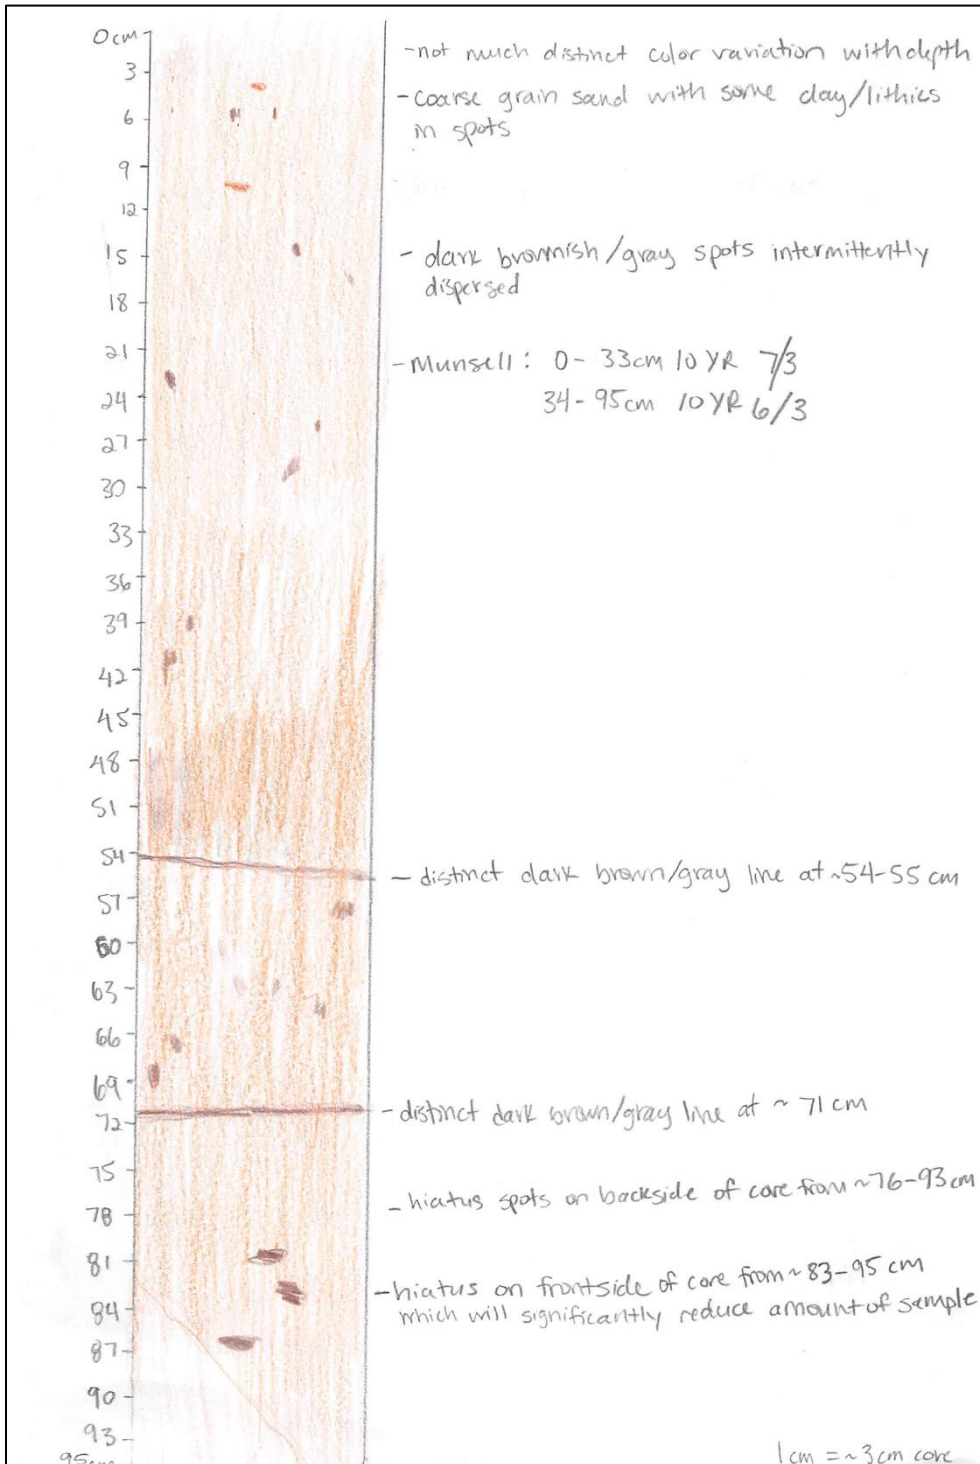 0cm
3
6
9
12
15
18
21
24
27
30
33
36
39
42
45
48
51
54
57
60
63
66
69
72
75
78
81
84
87
90
93
95cm
-not much distinct color variation with depth
-coarse grain sand with some clay/lithics
in spots
- dark brownish/gray spots intermittently
dispersed
-Munsell: 0-33cm 10 YR 7/3
34-95cm 10YR 6/3
- distinct dark brown/gray line at ~54-55 cm
-distinct dark brown/gray line at ~ 71 cm
-hiatus spots on backside of core from ~76-93cm
-hiatus on frontside of core from ~83-95 cm
which will significantly reduce amount of sample
1cm = ~3cm core